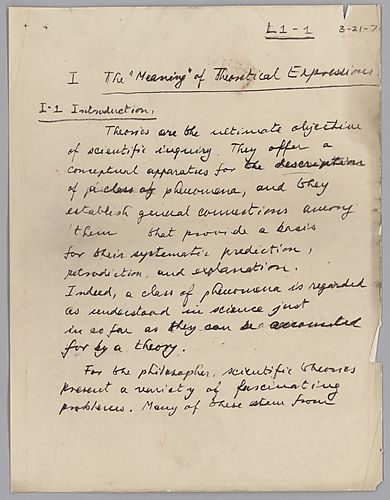 L1-1 3-21-7
I The "Meaning" of Theoretical Expressions
I-1 Introduction.
Theories are the ultimate objective
of scientific inquiry. They offer a
conceptual apparatus for the description
of a class of phenomena, and they
establish general connections among
them that provide a basis
for their systematic prediction,
retrodiction, and explanation.
Indeed, a class of phenomena is regarded
as understood in science just
in so far as they can be accounted
for by a theory.
For the philosopher, scientific theories
present a variety of fascinating
problems. Many of these stem from